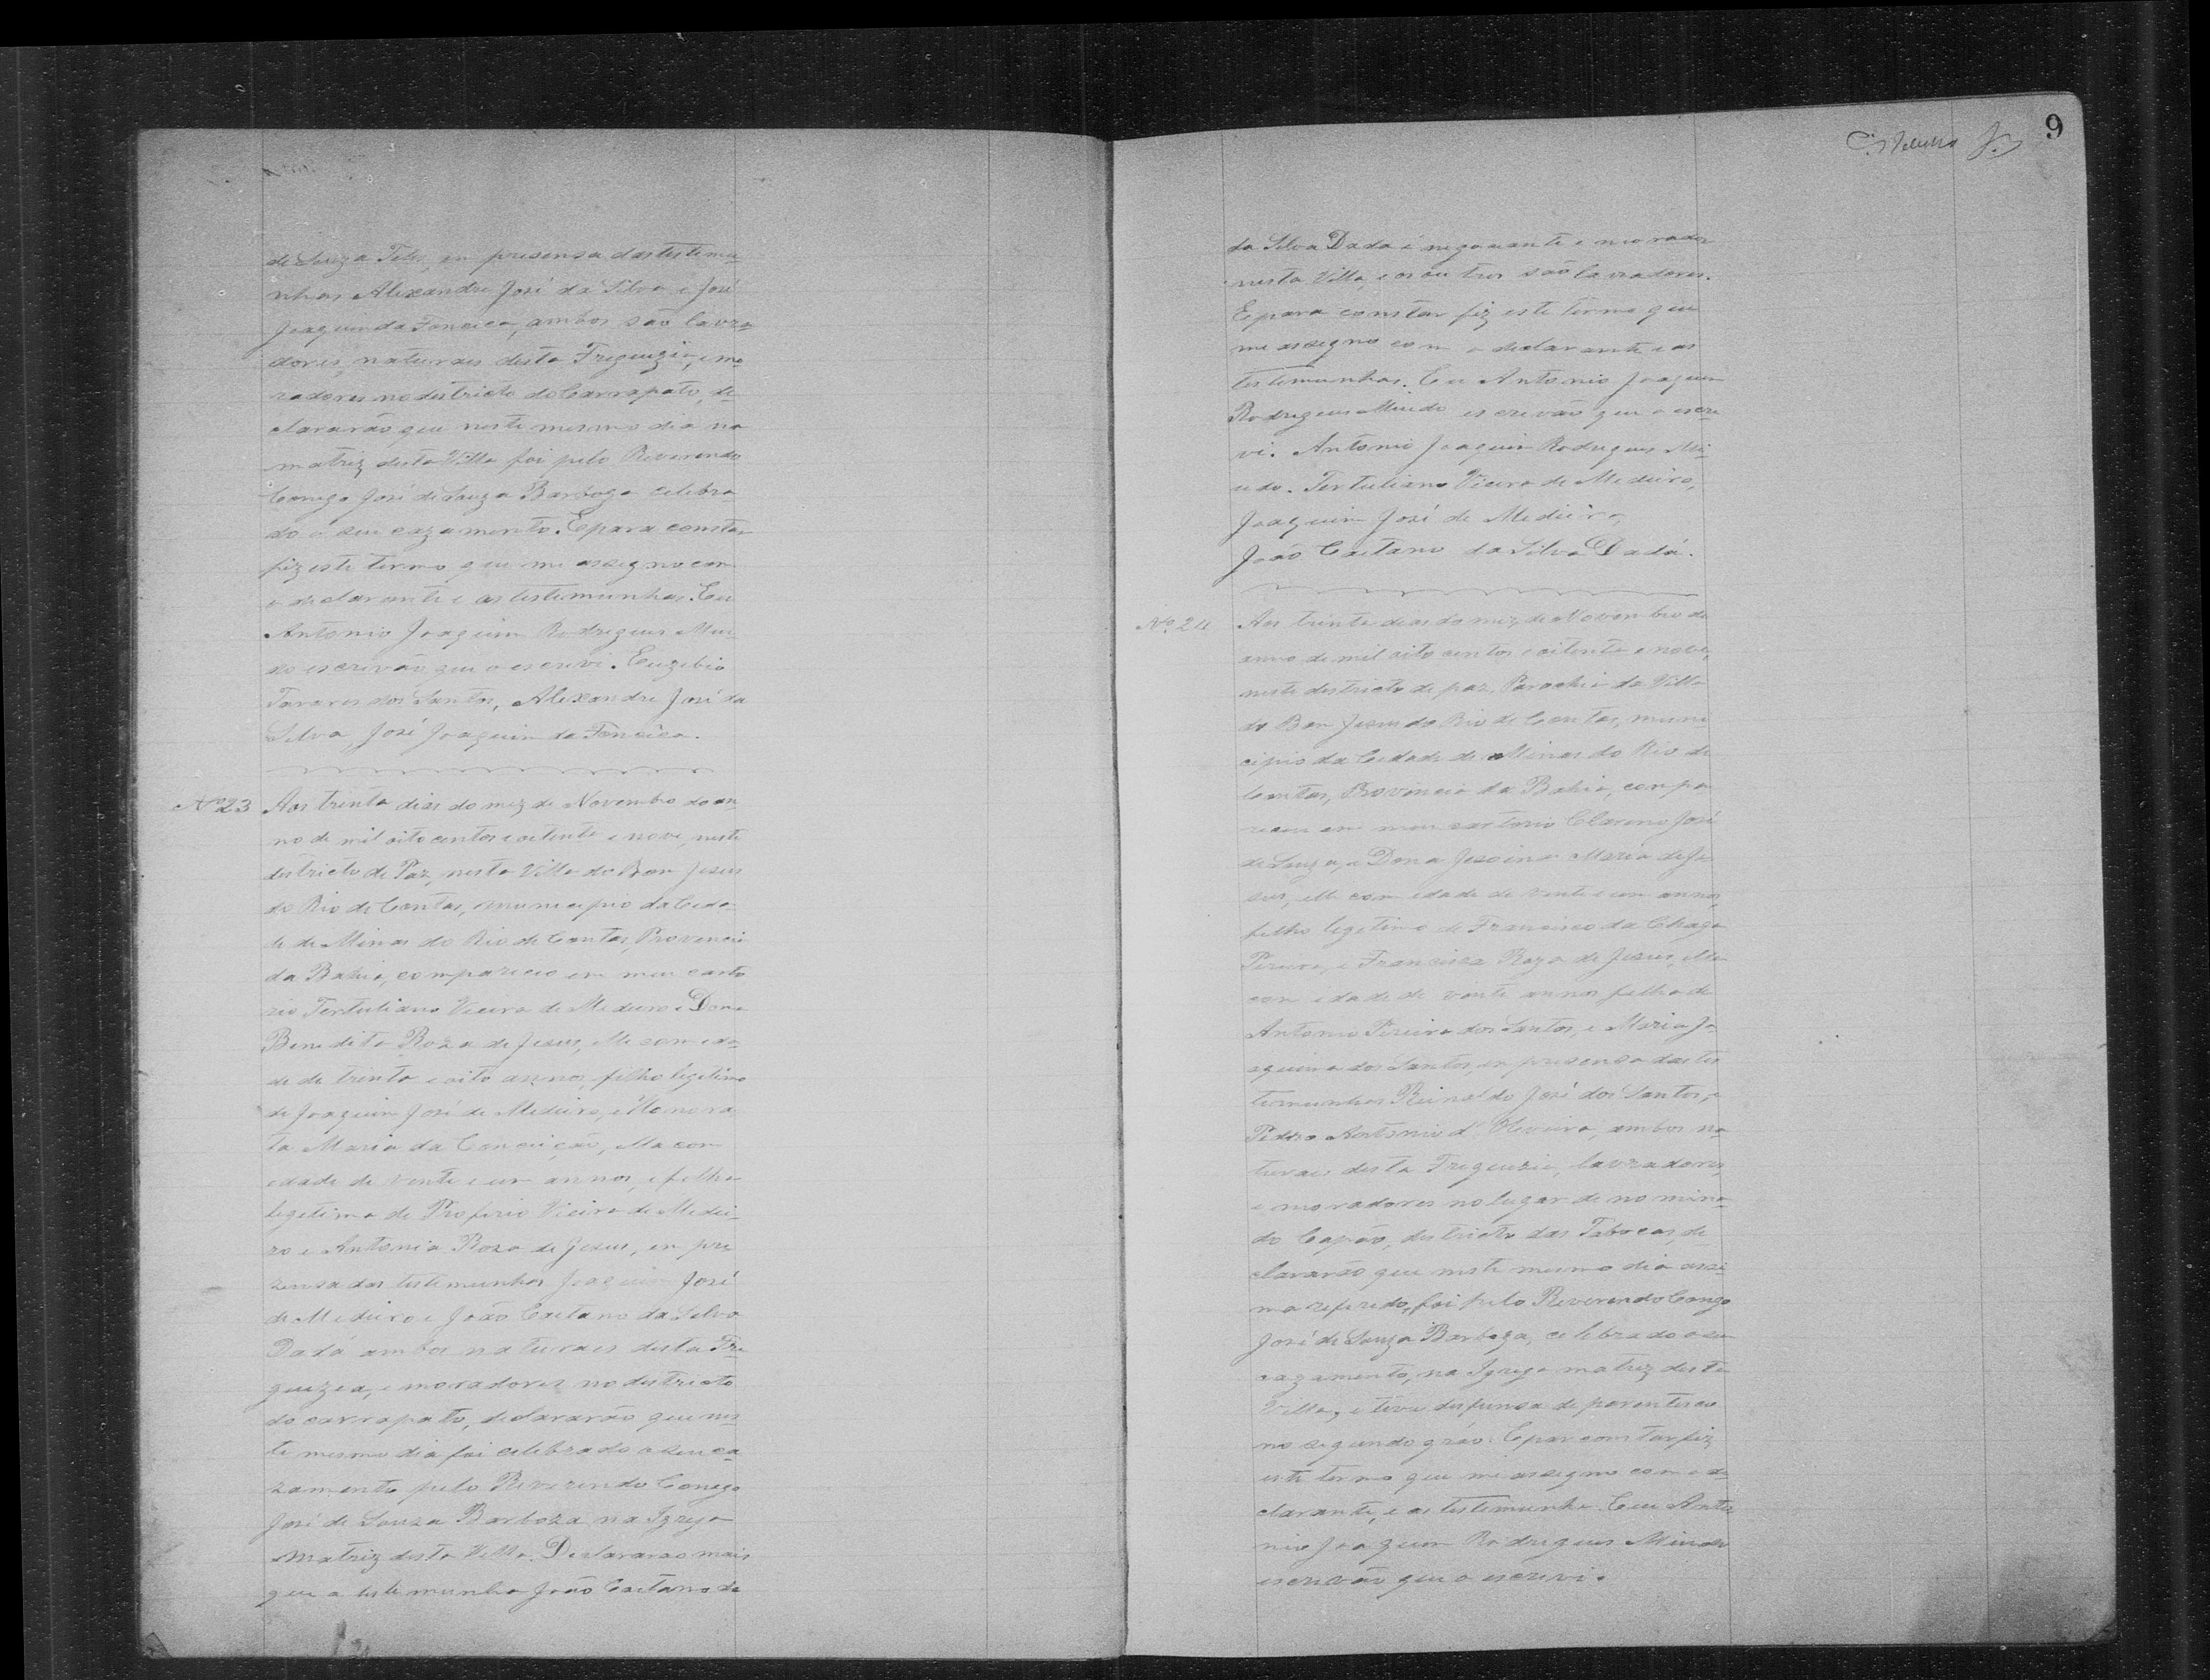 de Souza Teles, em presensa das testemu-
nhas Alexandre José da Silva e José
Joaquim da Fonceca, ambos são lavra-
dores, naturaes desta Freguezia, e mo-
radores no destricto do Carrapato, de-
clararão que neste mesmo dia na
matriz desta Villa foi pelo Reverendo
Conego José de Souza Barboza celebra
do o seu cazamento. E para constar
fiz este termo que me assegno com
o declarante e as testemunhas. Eu
Antonio Joaquim Rodrigues Miu
do escrivão que o escrevi. Euzebio
Tavares dos Santos, Alexandre José da
Silva, José Joaquim da Fonceca.
Nº 23
Aos trinta dias do mez de Novembro do an-
no de mil oito centos e oitenta e nove, neste
destricto de Paz, nesta Villa do Bom Jesus
do Rio de Contas, municipio da Cida-
de de Minas do Rio de Contas, Provencia
da Bahia, compareceo em meu carto
rio Tertuliano Vieira de Medeiro e Dona
Benedita Roza de Jesus, elle com eda-
de de trinta e oito annos, filho legitimo
de Joaquim José de Medeiro, e Honora
ta Maria da Conceição, ella com
edade de vente e um annos, e filha
legetima de Profirio Vieira de Medei-
ro e Antonia Roza de Jesus, em pre
zensa das testemunhas Joaquim José
de Medeiro e João Caetano da Silva
Dadá ambos naturaes desta Fre
guezia, e moradores no destricto
do carrapato, declararão que nes
te mesmo dia foi celebrado o seu ca-
zamento pelo Reverendo Conego
José de Souza Barboza na Igreja
matriz desta Villa. Declararão mais
que a testemunha João Caetano da
9
da Silva Dada é negociante e morador
nesta Villa, e os outros são lavradores.
E para constar fiz este termo que
me assegno com o declarante e as
testemunhas. Eu Antonio Joaquim
Rodrigues Miudo escrevão que o escre
vi. Antonio Joaquim Rodrigues Mi-
udo. Tertuliano Vieira de Medeiro,
Joaquim José de Medeiro,
João Caetano da Silva Dadá.
Nº 24
Aos trinta dias do mez de Novembro do
anno de mil oito centos e oitenta e nove,
neste destricto de paz, Parochia da Villa
do Bom Jesus do Rio de Contas, muni
cipio da Cidade de Minas do Rio de
Contas, Provencia da Bahia, compa
receu em meu cartorio José
de Souza, e Dona Jesoina Maria de Je
sus, elle com edade de vente e um annos,
filho legetimo de Francisco da Chaga
Pereira, e Francisca Roza de Jesus, ella
com edade de vente annos filha de
Antonio Pereira dos Santos, e Maria Jo
aquina dos Santos, em presensa das tes
temunhas Reinaldo José dos Santos, e
Pedro Antonio d'Oliveira, ambos na-
turaes desta Freguezia, lavradores,
e moradores no lugar denomina-
do Capão, destricto das Tabocas, de-
clararão que neste mesmo dia assi-
ma referido, foi pelo Reverendo Conego
José de Souza Barboza, celebrado o seu
cazamento, na Igreja matriz desta
Villa, e teve despensa de parentesco
no segundo gráo. E par constar fiz
este termo que me assegno com o de-
clarante, e as testemunha. Eu Anto
nio Joaquim Rodrigues Miudo
escrevão que o escrevi.